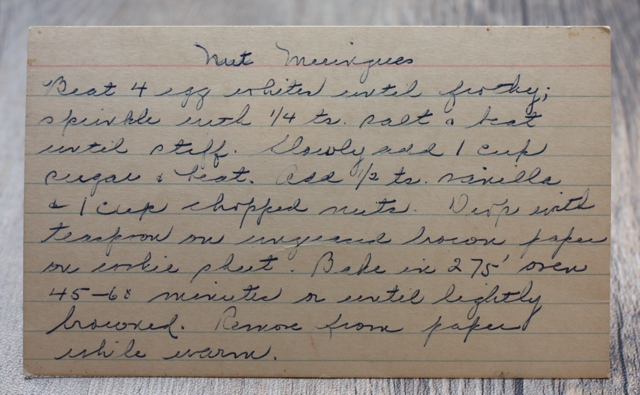 Nut Meringues
Beat 4 egg whites until frothy;
sprinkle with 1/4 ts. salt & beat
until stiff. Slowly add 1 cup
sugar & beat. Add 1/2 ts. vanilla
& 1 cup chopped nuts. Drop with
teaspoon on ungreased brown paper
on cookie sheet. Bake in 275° oven
45-60 minutes or until lightly
browned. Remove from paper
while warm.